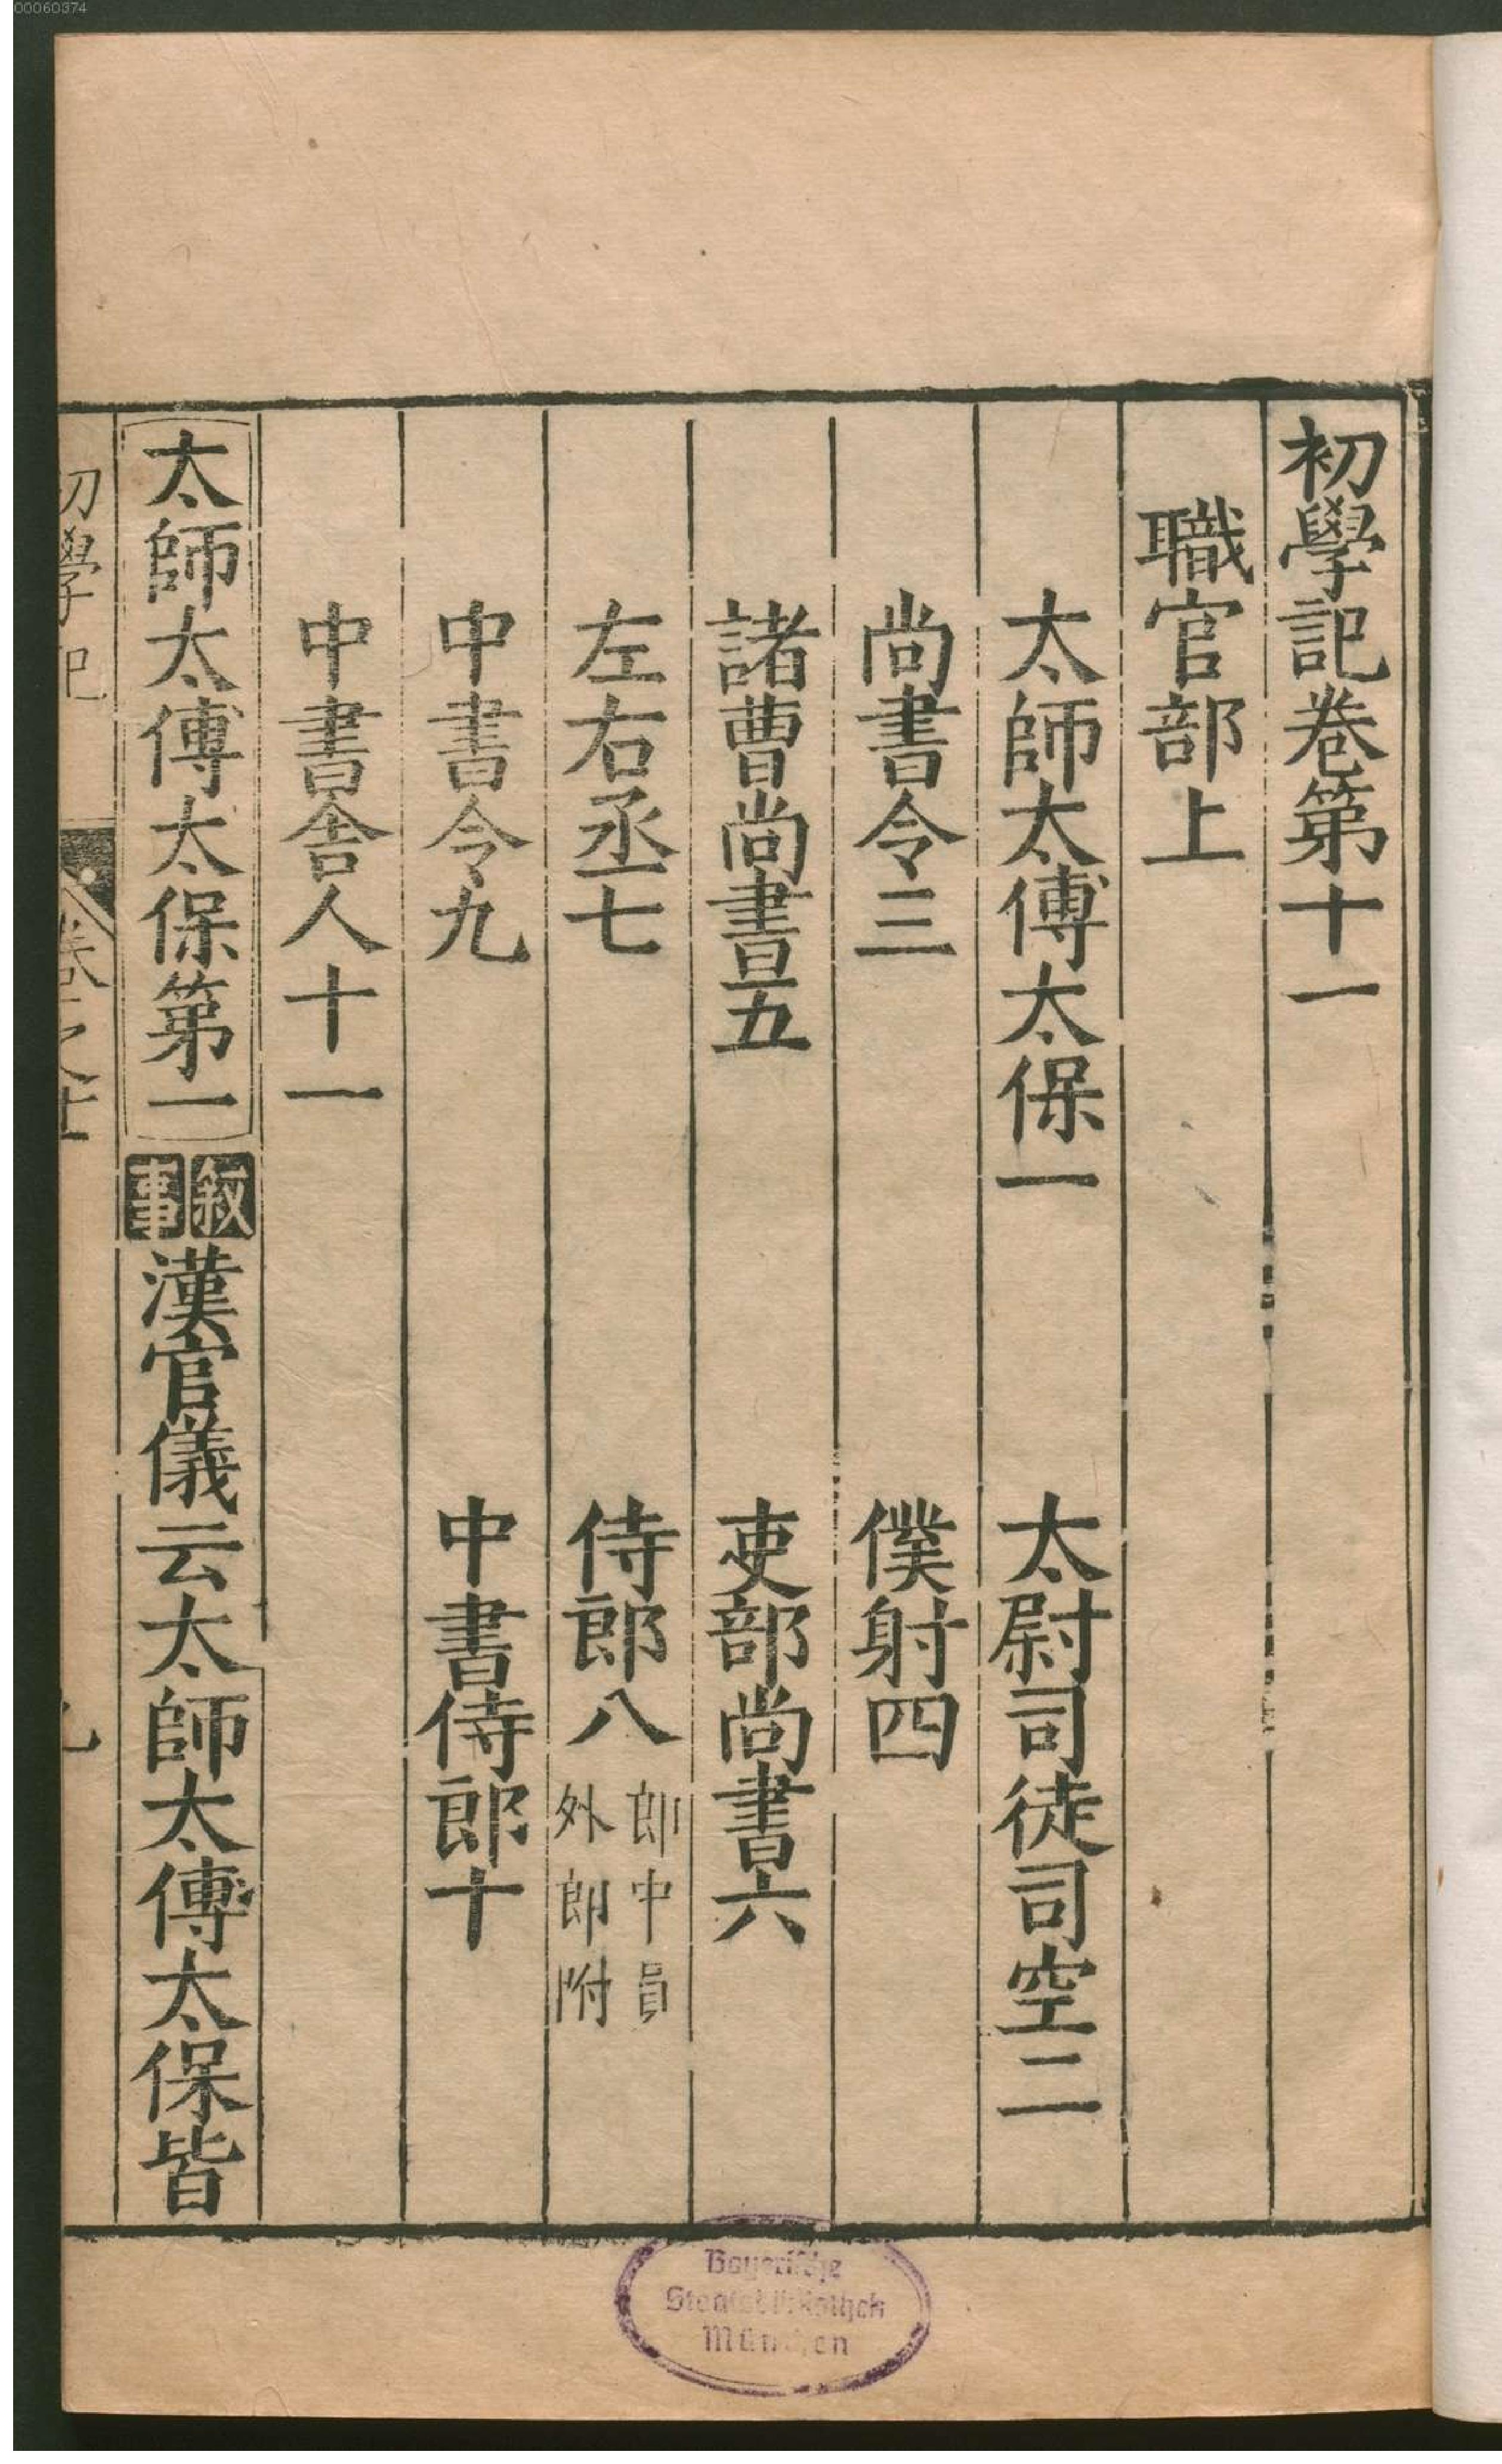 初學記卷第十一
職官部上
太師太傅太保一 太尉司徒司空二
尚書令三 僕射四
諸曹尚書五 吏部尚書六
左右丞七 侍郎八 郎中員外郎附
中書令九 中書侍郎十
中書舍人十一
太師太傅太保第一 叙事 漢官儀云太師太傅太保皆
初學記 卷之十一
Bayerische
Staatsbibliothek
München
00060374